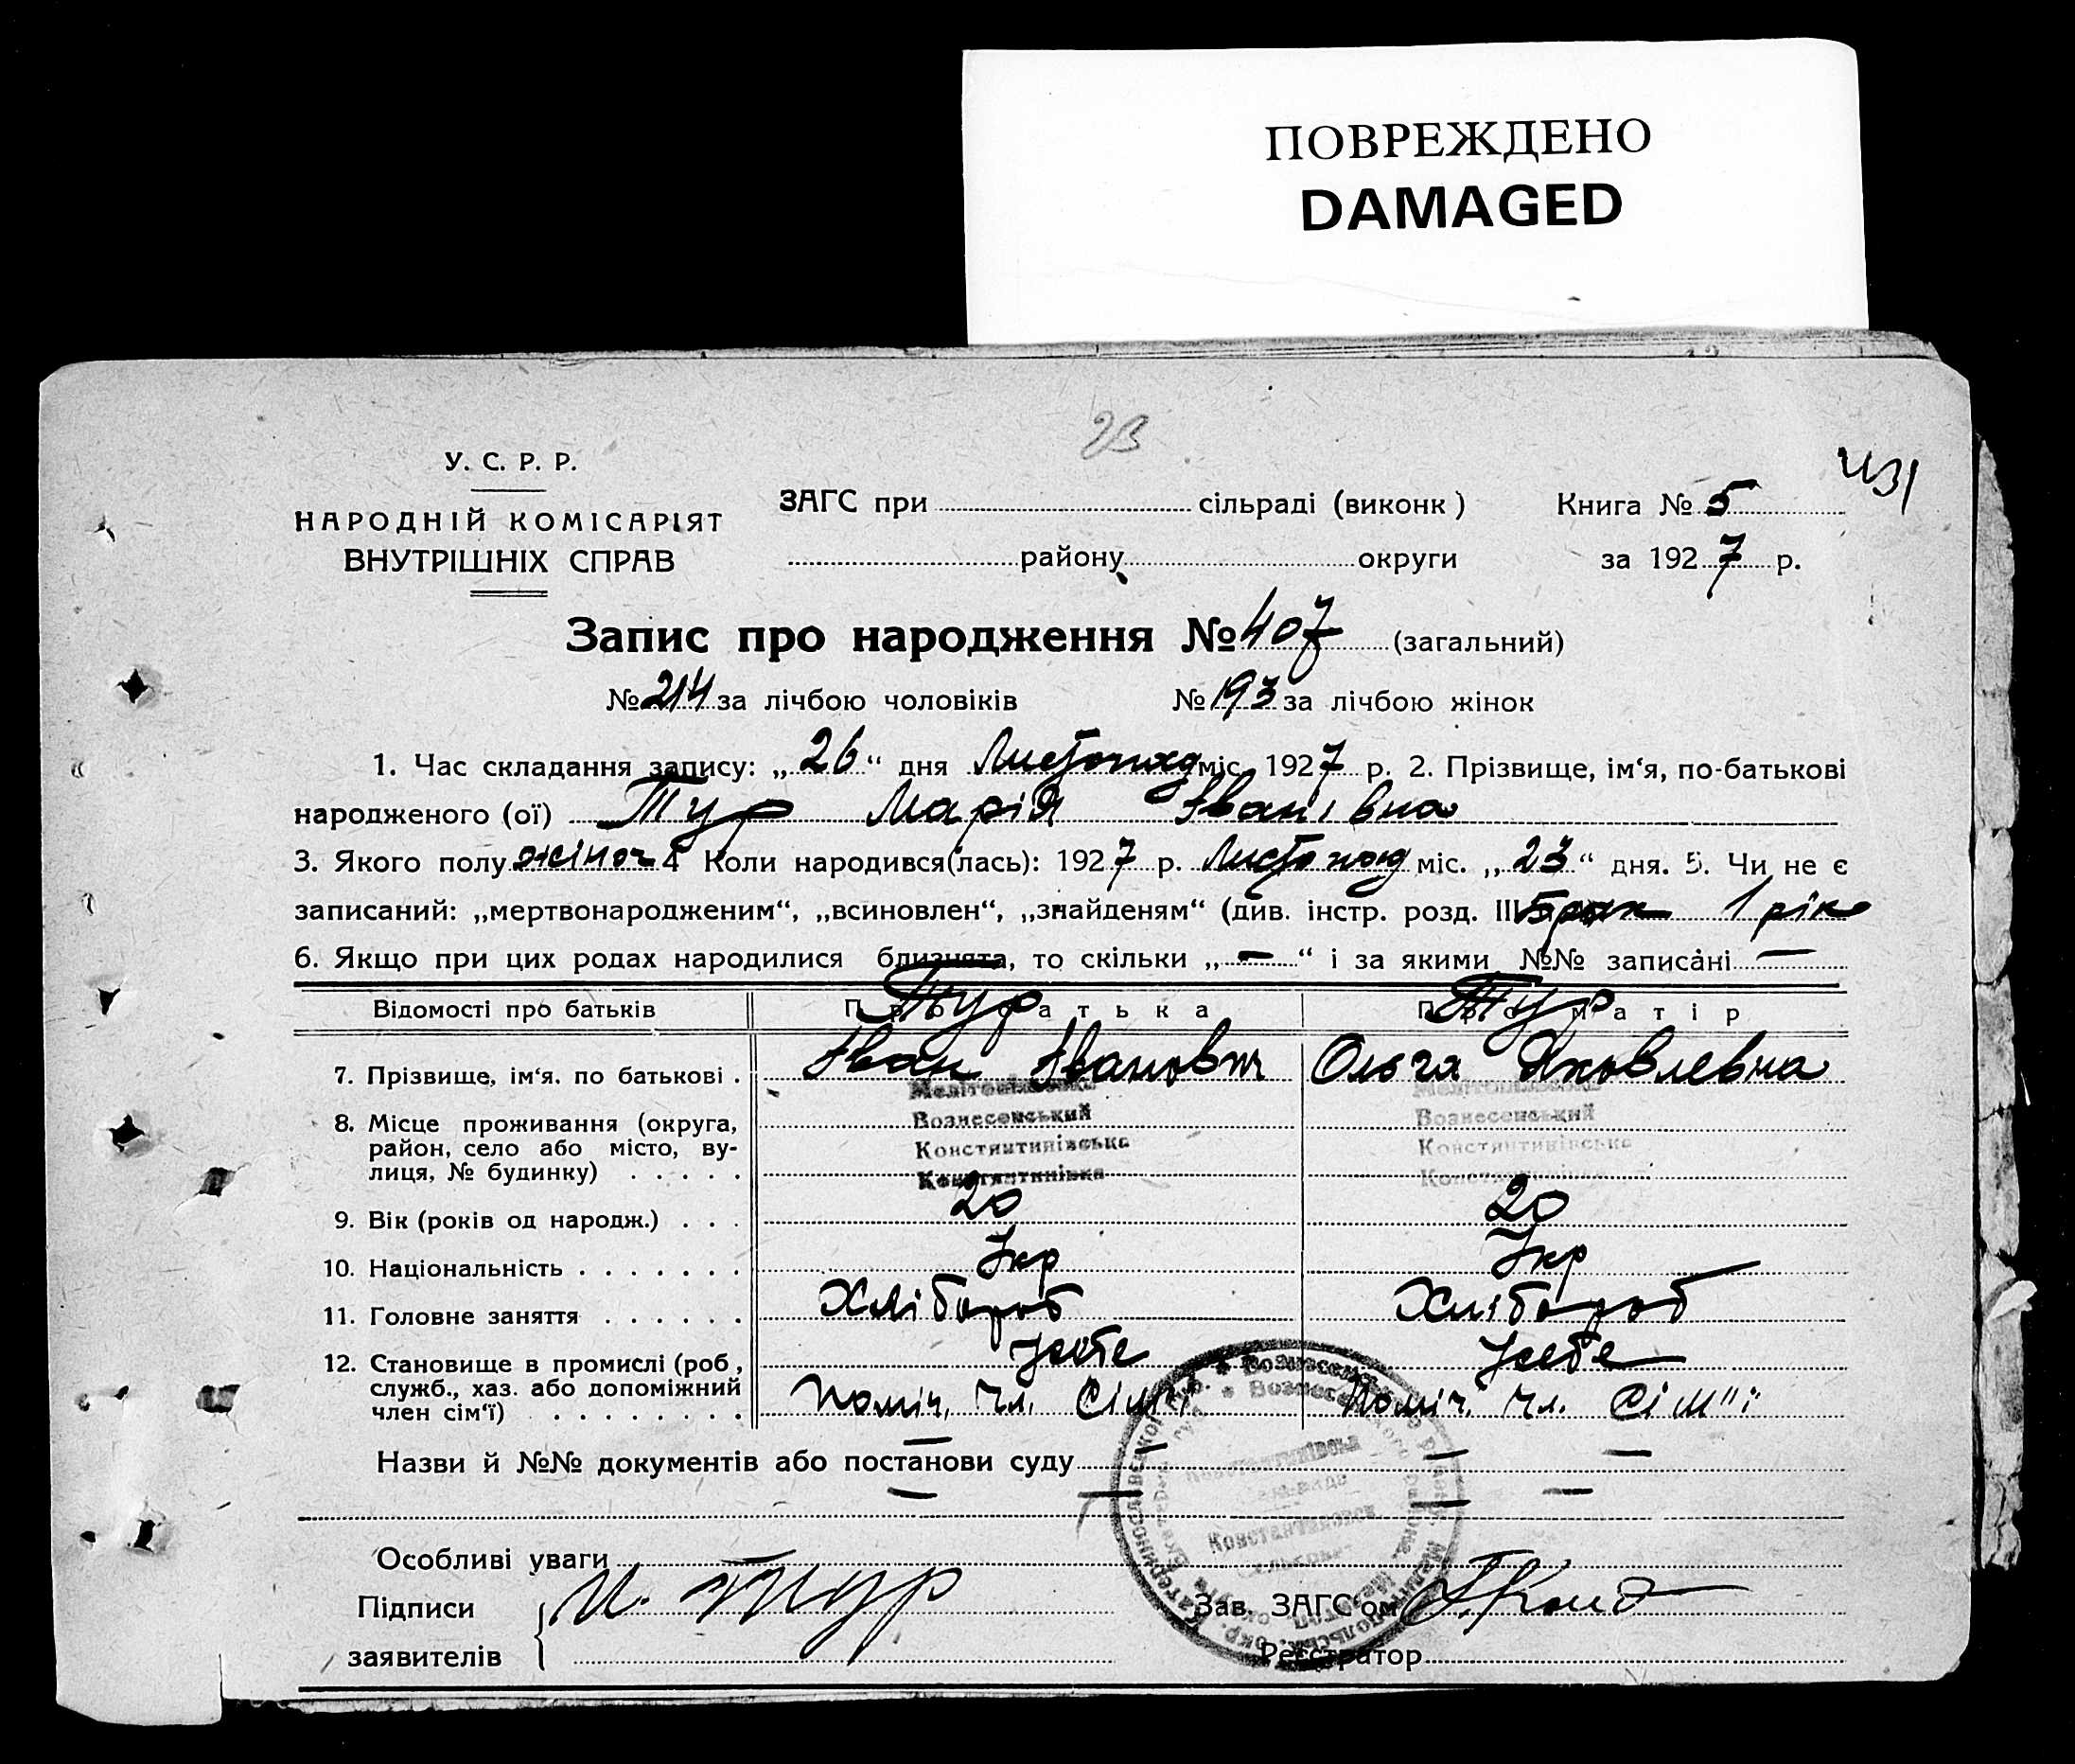 ПОВРЕЖДЕНО
DAMAGED
23
431
У. С. Р. Р.
НАРОДНІЙ КОМІСАРІЯТ
ВНУТРІШНІХ СПРАВ
ЗАГС при сільраді (виконк)
району округи
Книга № 5
за 1927 р.
Запис про народження № 407 (загальний)
№ 214 за лічбою чоловіків № 193 за лічбою жінок
1. Час складання запису: „26“ дня Листопад міс. 1927 р. 2. Прізвище, ім'я, по-батькові
народженого (ої) Тур Марія Іванівна
3. Якого полу жіноч 4 Коли народився(лась): 1927 р. Листопад міс. „23“ дня. 5. Чи не є
записаний: „мертвонародженим“, „всиновлен“, „знайденям“ (див. інстр. розд. III Брак 1 рік
6. Якщо при цих родах народилися близнята, то скільки „—“ і за якими №№ записані —
Відомості про батьків Про батька Про матір
Тур Тур
7. Прізвище, ім'я. по батькові . Іван Іванович Ольга Яковлевна
Мелітопільська Мелітопільська
8. Місце проживання (округа, Вознесенський Вознесенський
район, село або місто, ву- Констянтинівська Констянтинівська
лиця, № будинку) . . . . . Констянтинівка Констянтинівка
9. Вік (років од народж.) . . . 20 20
10. Національність . . . . . . . Укр Укр
11. Головне заняття . . . . . . Хлібороб Хлібороб
12. Становище в промислі (роб, Усебе Усебе
служб., хаз. або допоміжний
член сім'ї) . . . . . . . . Поміч. Чл. Сім'ї Поміч. Чл. Сім"ї
Назви й №№ документів або постанови суду — — — —
— — — —
Особливі уваги
Підписи И. Тур Зав. ЗАГС'ом
заявителів Реєстратор